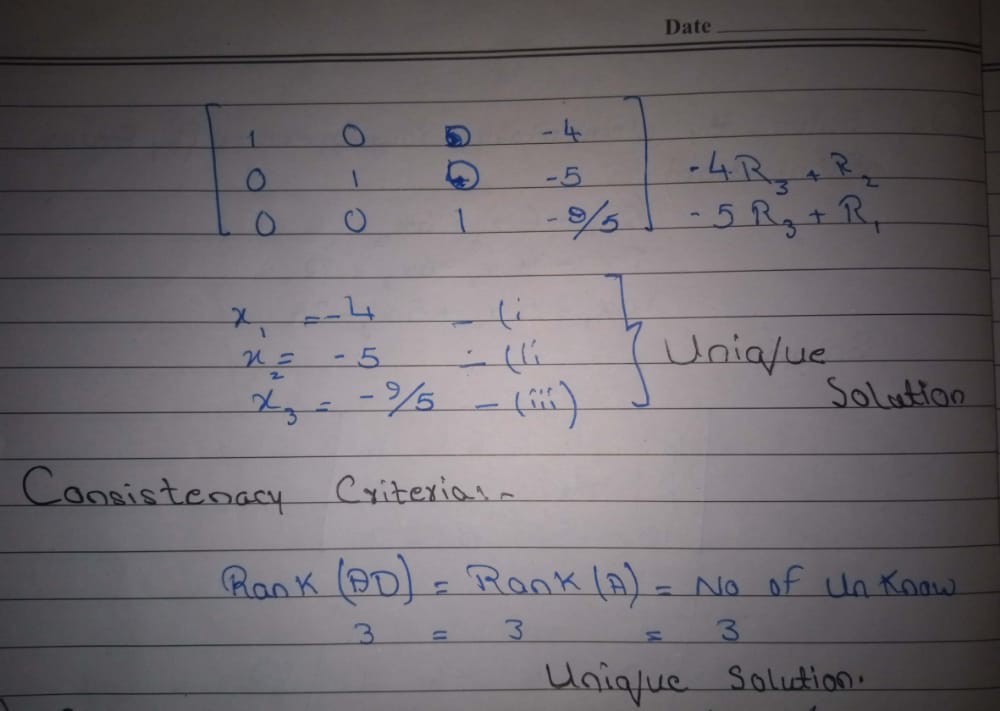 Date
1 0 0 -4
0 1 0 -5 -4R₃ + R₂
0 0 1 -9/5 -5R₃ + R₁
x₁ = -4 - (i
x₂ = -5 - (ii Unique
x₃ = -9/5 - (iii) Solution
Consistenacy Criteria:-
Rank (AD) = Rank (A) = No of UnKnow
3 = 3 = 3
Unique Solution.